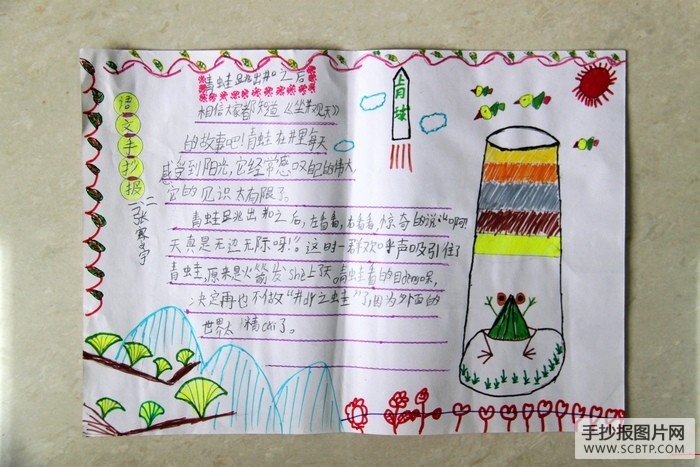 语文手抄报
二、二
张寓宇
青蛙跳出井口之后
相信大家都知道《坐井观天》
的故事吧!青蛙在井里每天
感受到阳光,它经常感叹自己的伟大,
它的见识太有限了。
青蛙跳出井口之后,左看看,右看看,惊奇的说:“啊!
天真是无边无际呀!”。这时一群欢呼声吸引住了
青蛙,原来是火箭发shè上了天。青蛙看的目dèng口呆,
决定再也不做“井dǐ之蛙”了,因为外面的
世界太精cǎi了。
月球
上
手抄报图片网
WWW.SCBTP.COM